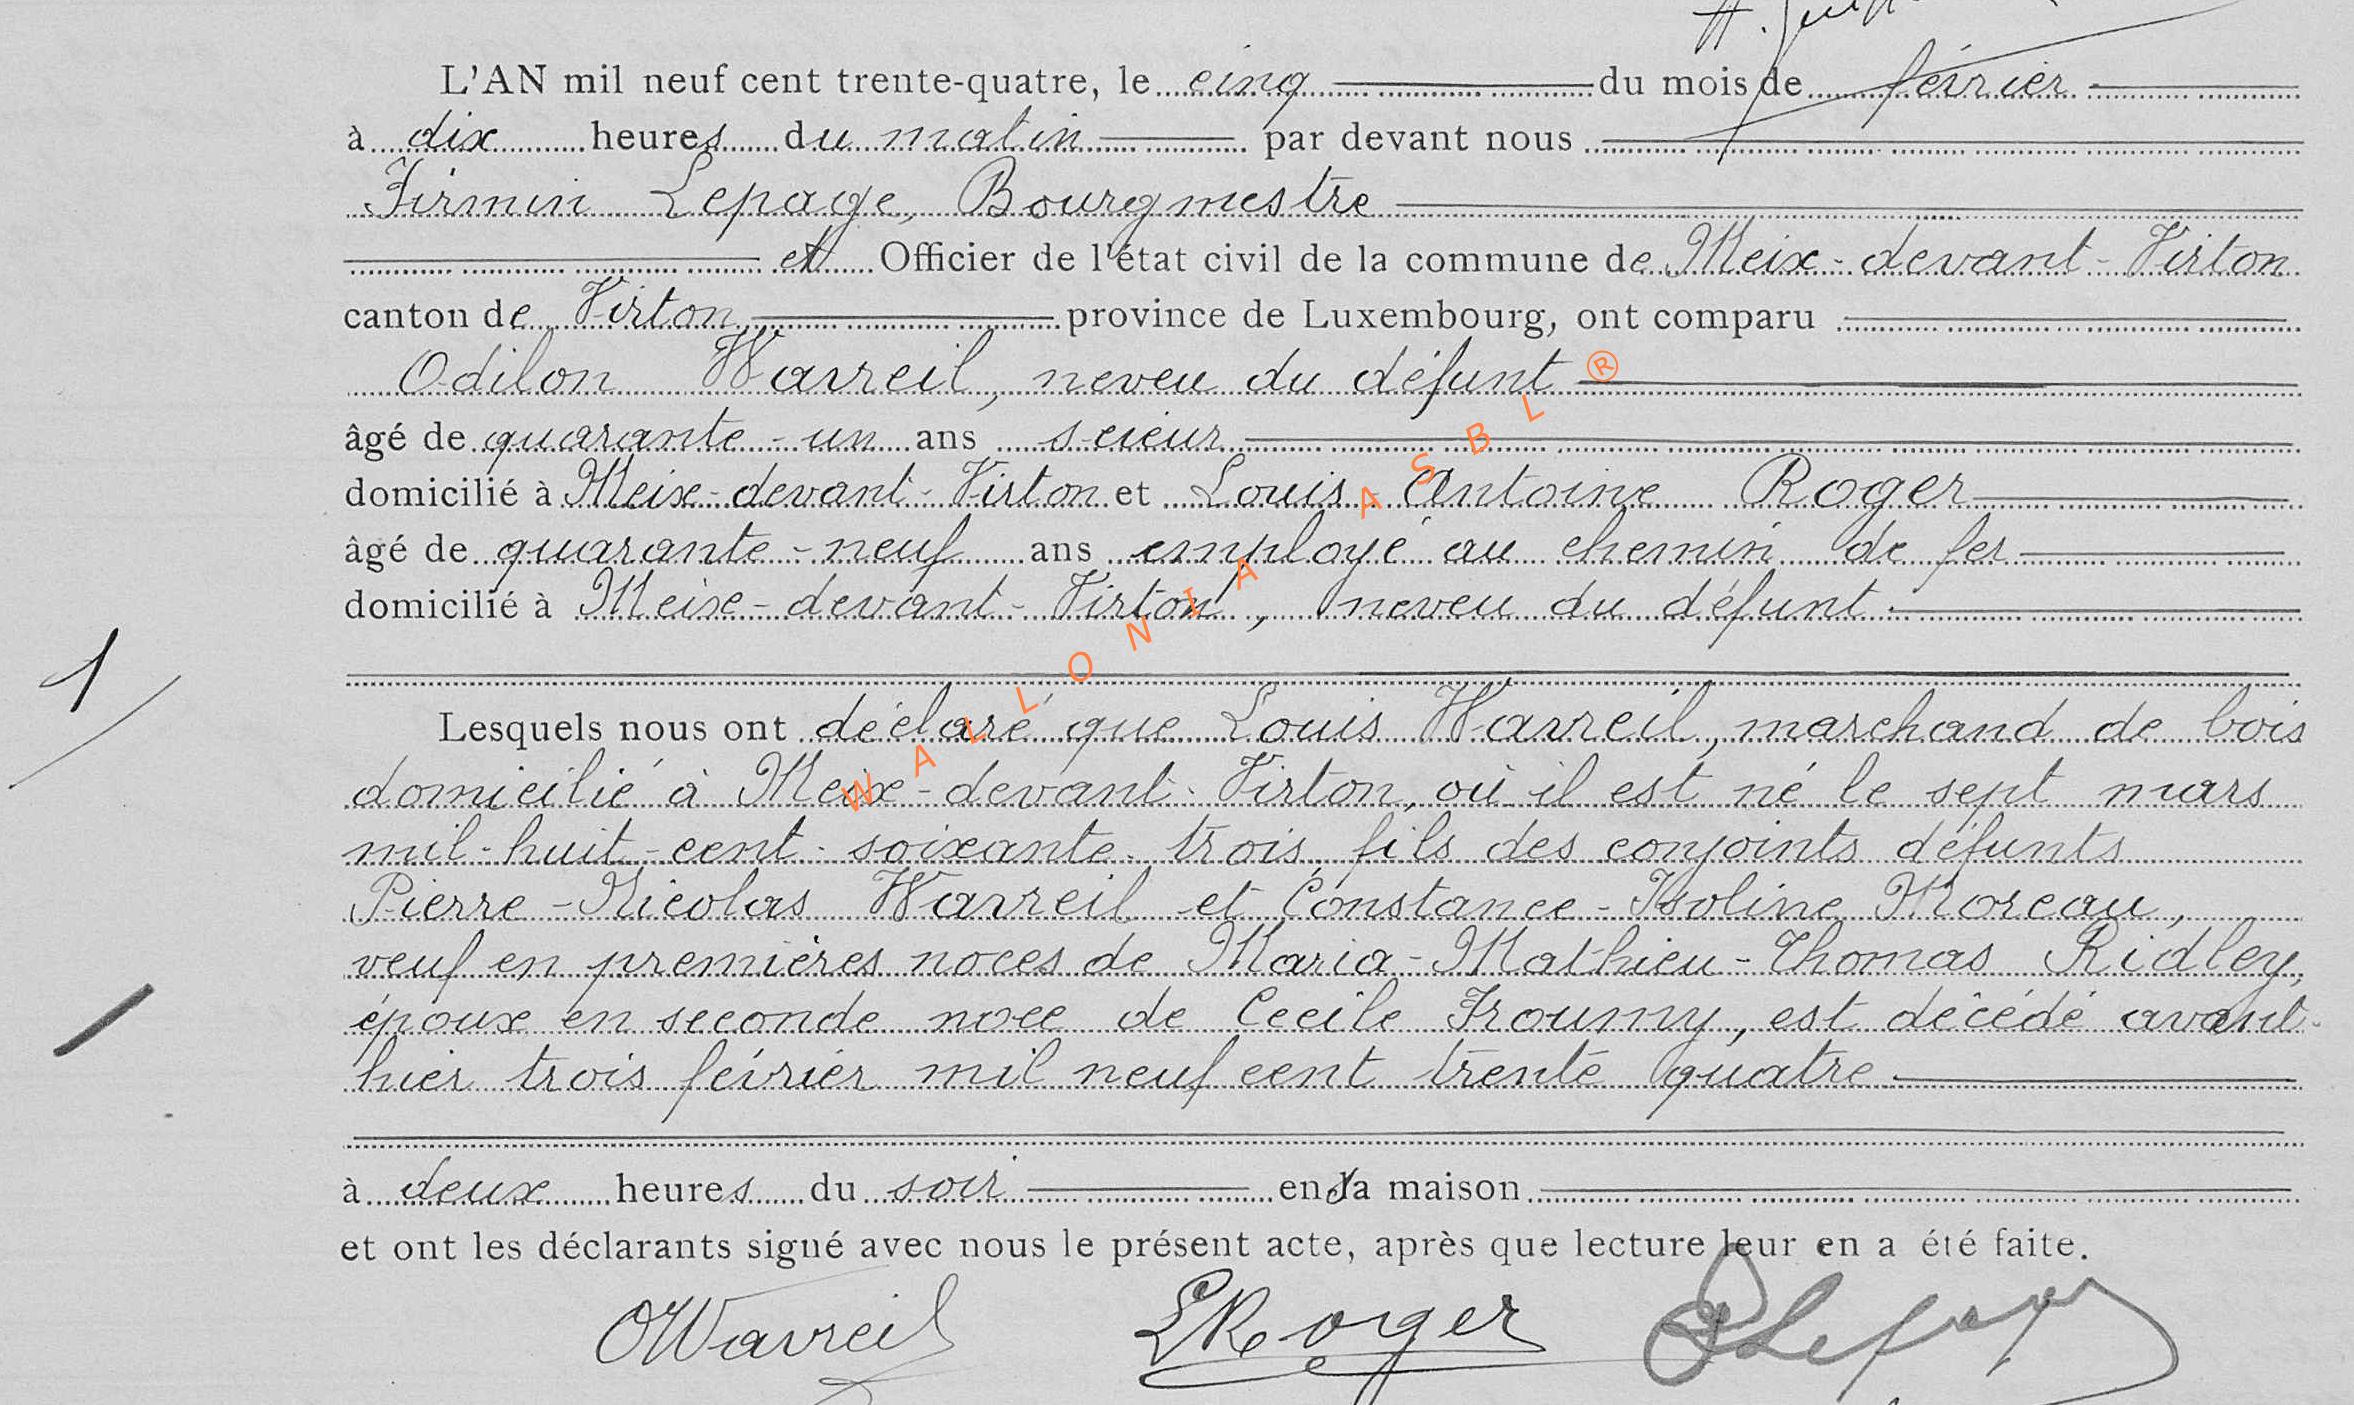 L'AN mil neuf cent trente-quatre, le cinq du mois de février
à dix heures du matin par devant nous
Firmin Lepage, Bourgmestre
et Officier de l'état civil de la commune de Meix-devant-Virton
canton de Virton province de Luxembourg, ont comparu
Odilon Wavreil, neveu du défunt
âgé de quarante-un ans scieur
domicilié à Meix-devant-Virton et Louis-Antoine Roger
âgé de quarante-neuf ans employé au chemin de fer
domicilié à Meix-devant-Virton, neveu du défunt.
1
Lesquels nous ont déclaré que Louis Wavreil, marchand de bois
domicilié à Meix-devant-Virton, où il est né le sept mars
mil-huit-cent-soixante-trois, fils des conjoints défunts
Pierre-Nicolas Wavreil et Constance-Isoline Moreau,
veuf en premières noces de Maria-Mathieu-Thomas Ridley,
époux en seconde noce de Cécile Froumy, est décédé avant-
hier trois février mil neuf cent trente quatre
à deux heures du soir en sa maison
et ont les déclarants signé avec nous le présent acte, après que lecture leur en a été faite.
OWavreil LRoger Lepage
WALLONIA ASBL ®